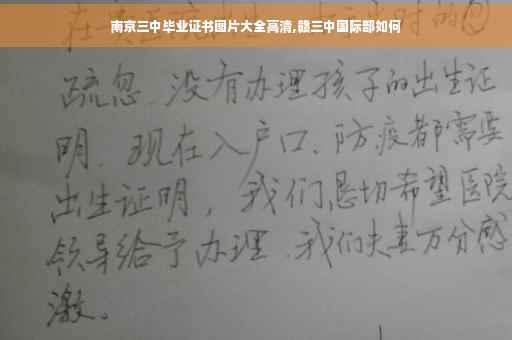 南京三中毕业证书图片大全高清,赣三中国际部如何
疏忽、没有办理孩子的出生证
明. 现在入户口、防疫都需要
出生证明，我们恳切希望医院
领导给予办理、我们夫妻万分感
激。